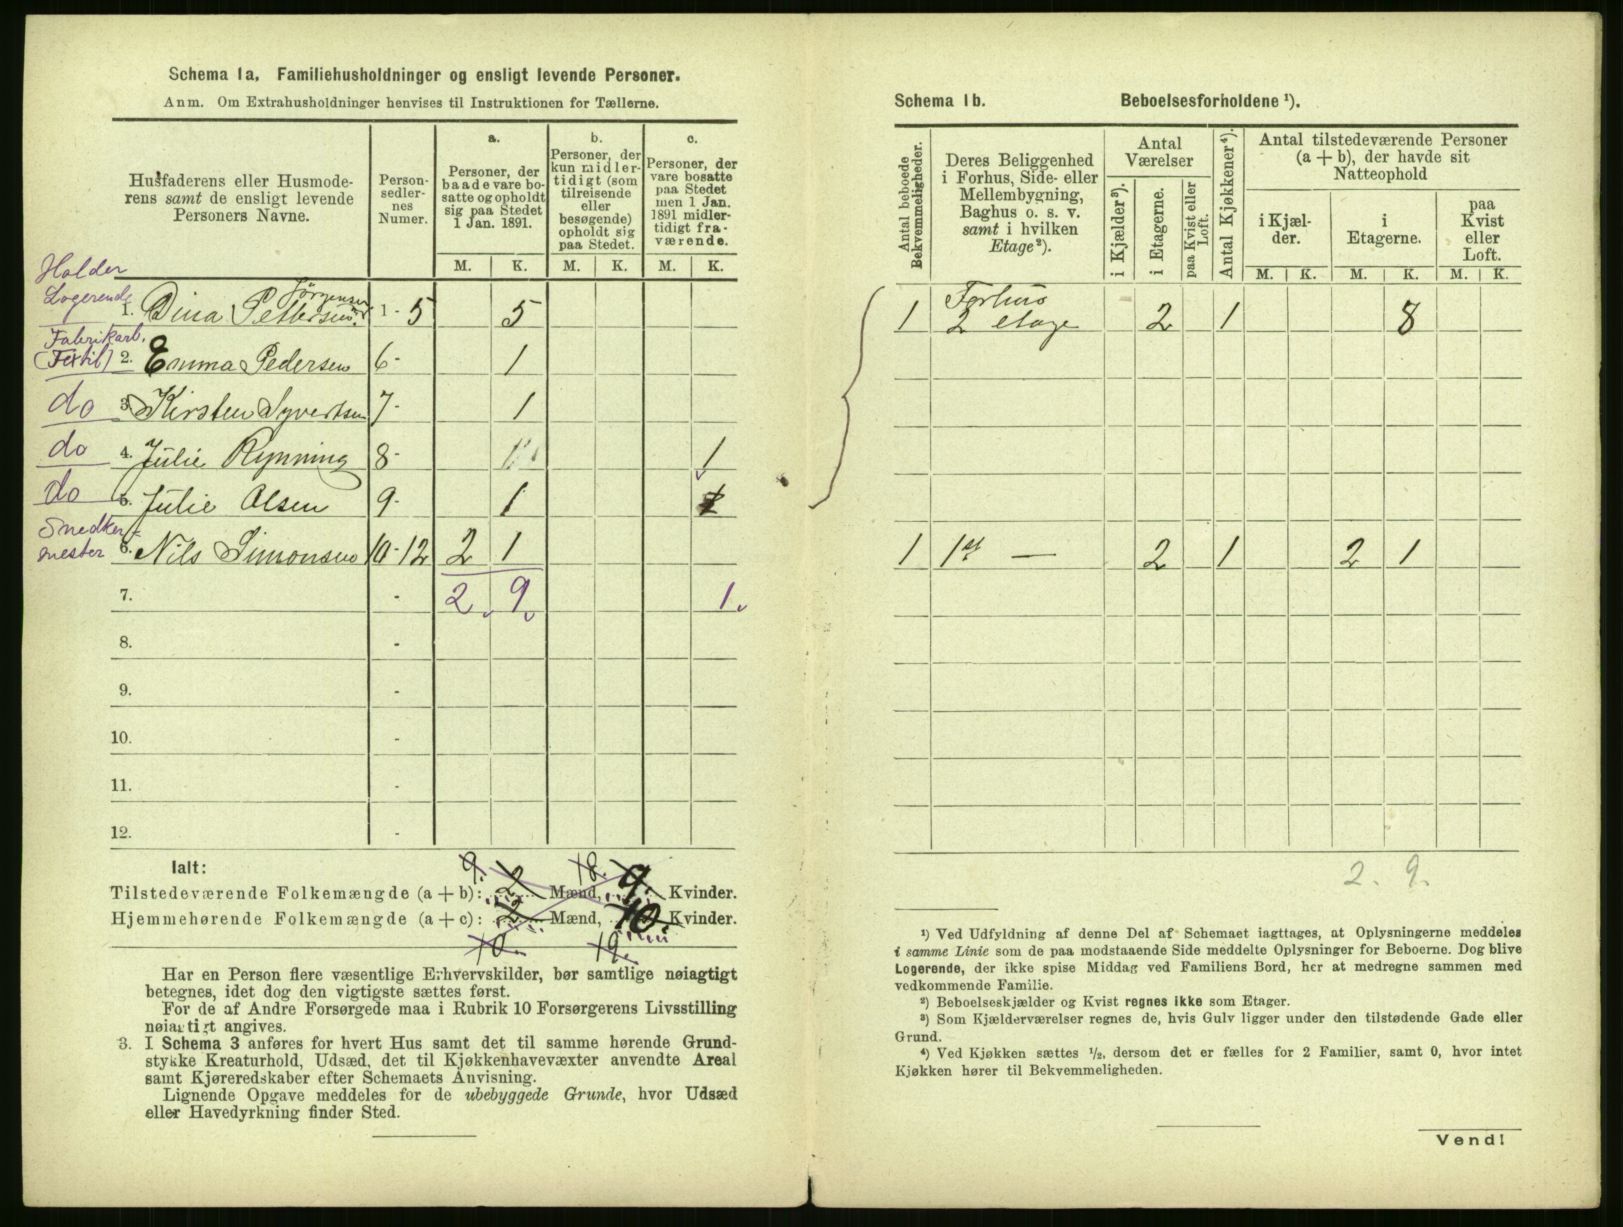 Schema 1a. Familiehusholdninger og ensligt levende Personer.
Anm. Om Extrahusholdninger henvises til Instruktionen for Tællerne.
Husfaderens eller Husmode-
rens samt de ensligt levende
Personers Navne.
Person-
sedler-
nes
Numer.
a.
Personer, der
baade vare bo-
satte og opholdt
sig paa Stedet
1 Jan. 1891.
b.
Personer, der
kun midler-
tidigt (som
tilreisende
eller
besøgende)
opholdt sig
paa Stedet.
c.
Personer, der
vare bosatte
paa Stedet
men 1 Jan.
1891 midler-
tidigt fra-
værende.
M. K. M. K. M. K.
Holder
Logerende
1. Dina Pettersen Jørgensen 1-5 5
Fabrikarb.
(Textil) 2. Emma Pedersen 6- 1
do 3. Kirsten Syvertsen 7- 1
do 4. Julie Rynning 8- 1
do 5. Julie Olsen 9- 1
Snedker-
mester 6. Nils Simonsen 10-12 2 1
7. - 2. 9. 1.
8. -
9. -
10. -
11. -
12. -
Ialt:
9. 18.
Tilstedeværende Folkemængde (a + b): 2 Mænd, 9. Kvinder.
Hjemmehørende Folkemængde (a + c): 2 Mænd, 10. Kvinder.
10. 19.
Har en Person flere væsentlige Erhvervskilder, bør samtlige nøiagtigt
betegnes, idet dog den vigtigste sættes først.
For de af Andre Forsørgede maa i Rubrik 10 Forsørgerens Livsstilling
nøiagtigt angives.
3. I Schema 3 anføres for hvert Hus samt det til samme hørende Grund-
stykke Kreaturhold, Udsæd, det til Kjøkkenhavevæxter anvendte Areal
samt Kjøreredskaber efter Schemaets Anvisning.
Lignende Opgave meddeles for de ubebyggede Grunde, hvor Udsæd
eller Havedyrkning finder Sted.
Schema 1b. Beboelsesforholdene ¹).
Antal beboede
Bekvemmeligheder.
Deres Beliggenhed
i Forhus, Side- eller
Mellembygning,
Baghus o. s. v.
samt i hvilken
Etage²).
Antal
Værelser
i Kjælder³).
i Etagerne.
paa Kvist eller
Loft.
Antal Kjøkkener⁴).
Antal tilstedeværende Personer
(a + b), der havde sit
Natteophold
i Kjæl-
der.
i
Etagerne.
paa
Kvist
eller
Loft.
M. K. M. K. M. K.
Forhus
1 2 etage 2 1 8
1 1st — 2 1 2 1
2. 9.
¹) Ved Udfyldning af denne Del af Schemaet iagttages, at Oplysningerne meddeles
i samme Linie som de paa modstaaende Side meddelte Oplysninger for Beboerne. Dog blive
Logerende, der ikke spise Middag ved Familiens Bord, her at medregne sammen med
vedkommende Familie.
²) Beboelseskjælder og Kvist regnes ikke som Etager.
³) Som Kjælderværelser regnes de, hvis Gulv ligger under den tilstødende Gade eller
Grund.
⁴) Ved Kjøkken sættes ½, dersom det er fælles for 2 Familier, samt 0, hvor intet
Kjøkken hører til Bekvemmeligheden.
Vend!